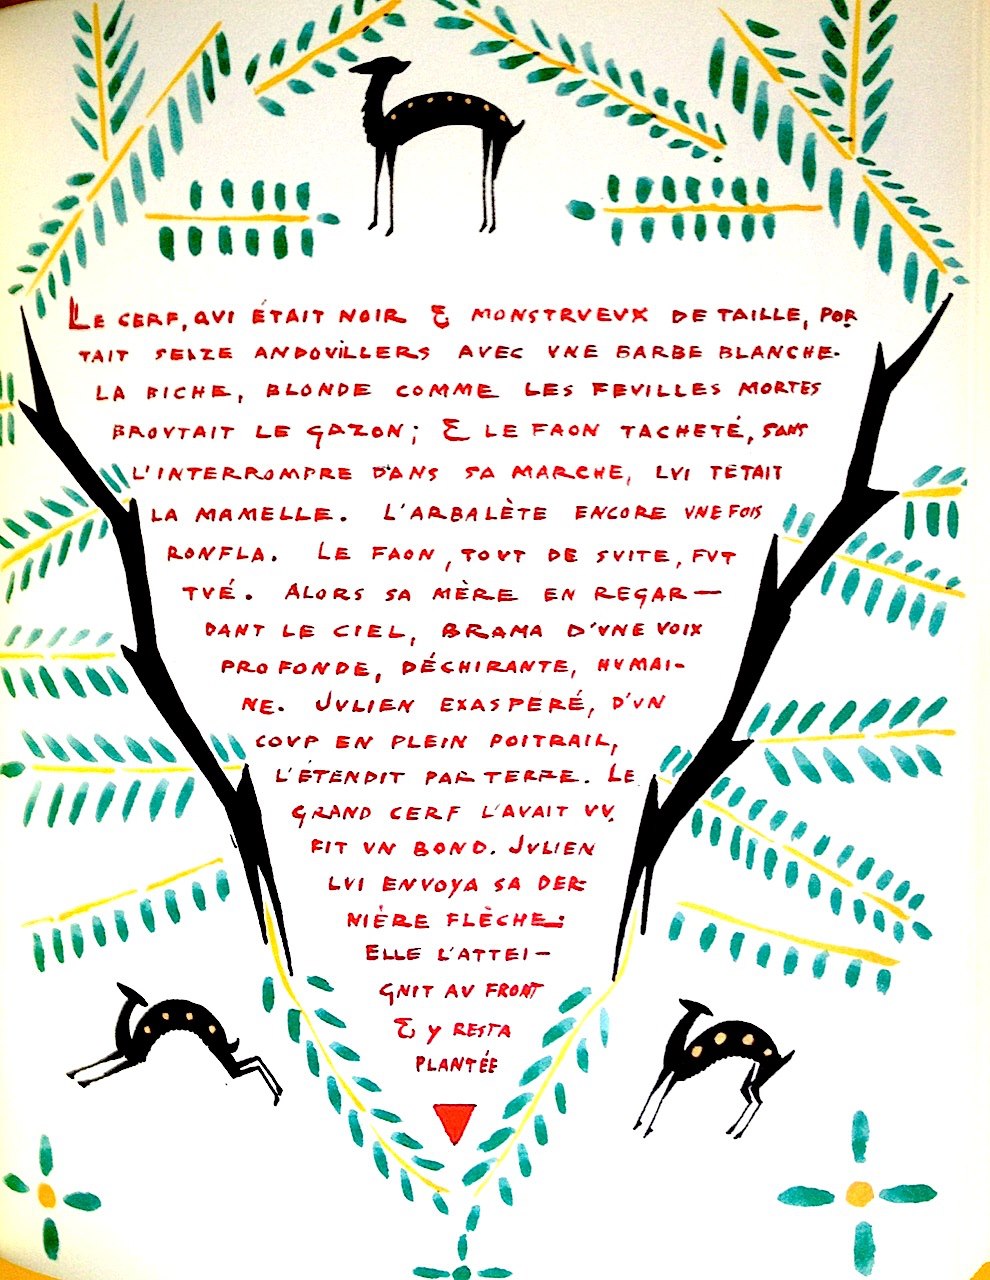 LE CERF, QVI ÉTAIT NOIR & MONSTRVEVX DE TAILLE, POR
TAIT SEIZE ANDOVILLERS AVEC VNE BARBE BLANCHE.
LA BICHE, BLONDE COMME LES FEVILLES MORTES
BROVTAIT LE GAZON; & LE FAON TACHETÉ, SANS
L'INTERROMPRE DANS SA MARCHE, LVI TETAIT
LA MAMELLE. L'ARBALÈTE ENCORE VNE FOIS
RONFLA. LE FAON, TOVT DE SVITE, FVT
TVÉ. ALORS SA MÈRE EN REGAR—
DANT LE CIEL, BRAMA D'VNE VOIX
PROFONDE, DÉCHIRANTE, HVMAI-
NE. JVLIEN EXASPERÉ, D'VN
COVP EN PLEIN POITRAIL,
L'ÉTENDIT PAR TERRE. LE
GRAND CERF L'AVAIT VV,
FIT VN BOND. JVLIEN
LVI ENVOYA SA DER-
NIÈRE FLÈCHE:
ELLE L'ATTEI—
GNIT AV FRONT
& Y RESTA
PLANTÉE